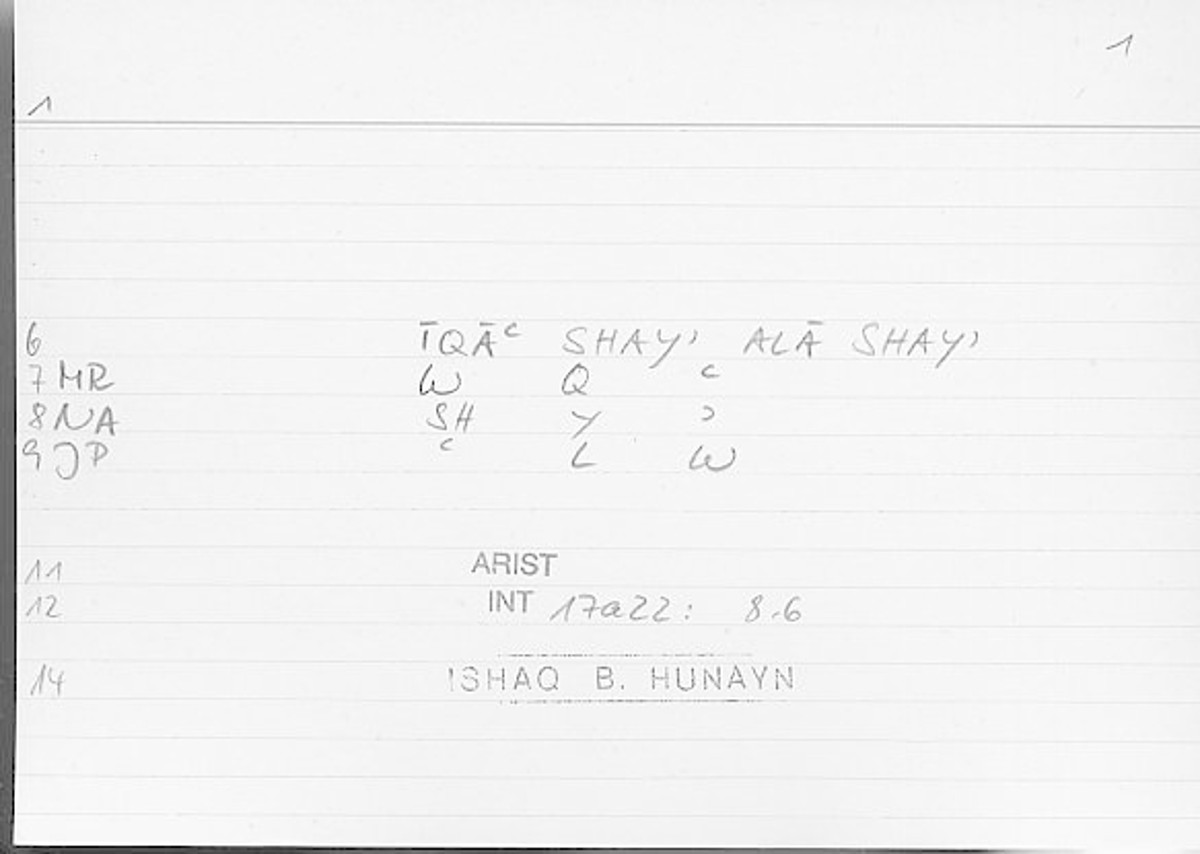 1
1
6 ĪQĀᶜ SHAYʾ ALĀ SHAYʾ
7 MR W Q ᶜ
8 NA SH Y ʾ
9 JP ᶜ L W
11 ARIST
12 INT 17a22: 8.6
14 ISHAQ B. HUNAYN